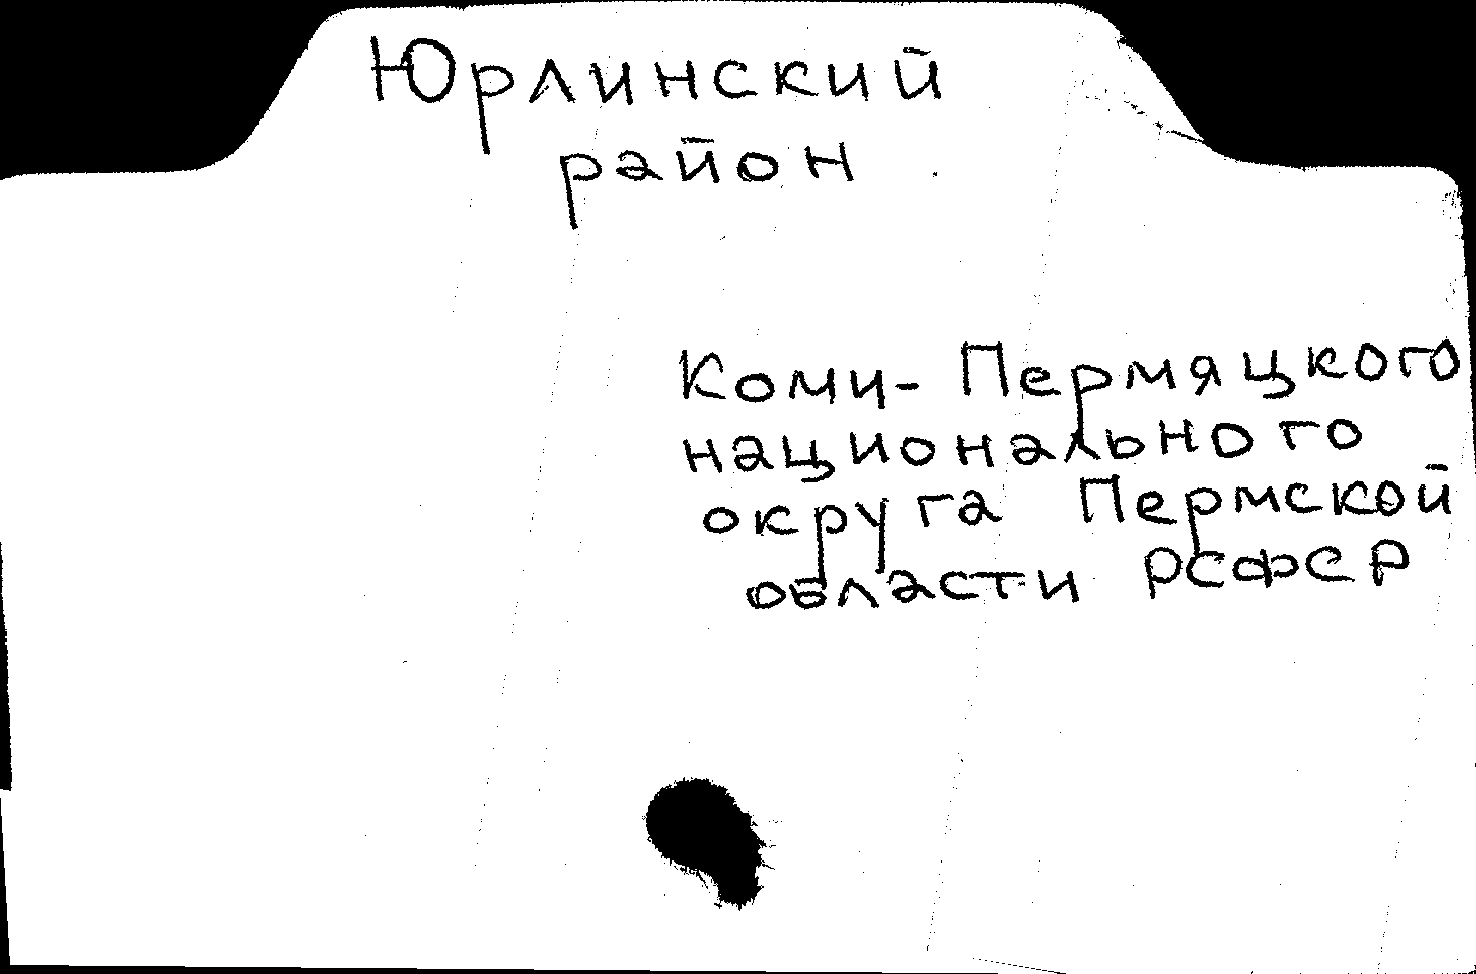 Юрлинский
район
Коми-Пермяцкого
национального
округа Пермской
области РСФСР